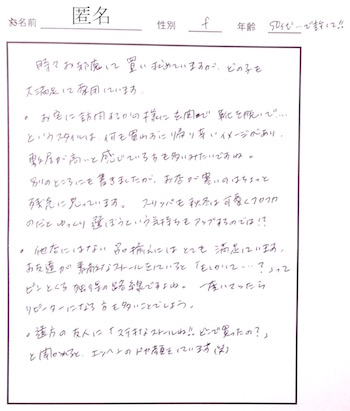 お名前 匿名 性別 f 年齢 50代〜で許して!!
時々お邪魔して買い求めていますが、どの子も
大満足して愛用しています。
・お宅に訪問するかの様に玄関で靴を脱いで…
というスタイルは何も買わずに帰り辛いイメージがあり、
敷居が高いと感じている方も多いみたいですね。
別のところにも書きましたが、お店が寒いのはちょっと
残念に思っています。スリッパも秋冬は可愛くフカフカ
のだとゆっくり選ぼうという気持ちもアップするのでは!?
・他店にはない品揃えにはとても満足しています。
お友達が素敵なストールをしていると「もしかして…?」って
ピンとくる独特の路線ですよね。一度ハマったら
リピーターになる方も多いことでしょう。
・遠方の友人に「ステキなストールね!!どこで買ったの?」
と聞かれると、エッヘンのドヤ顔をしています(笑)